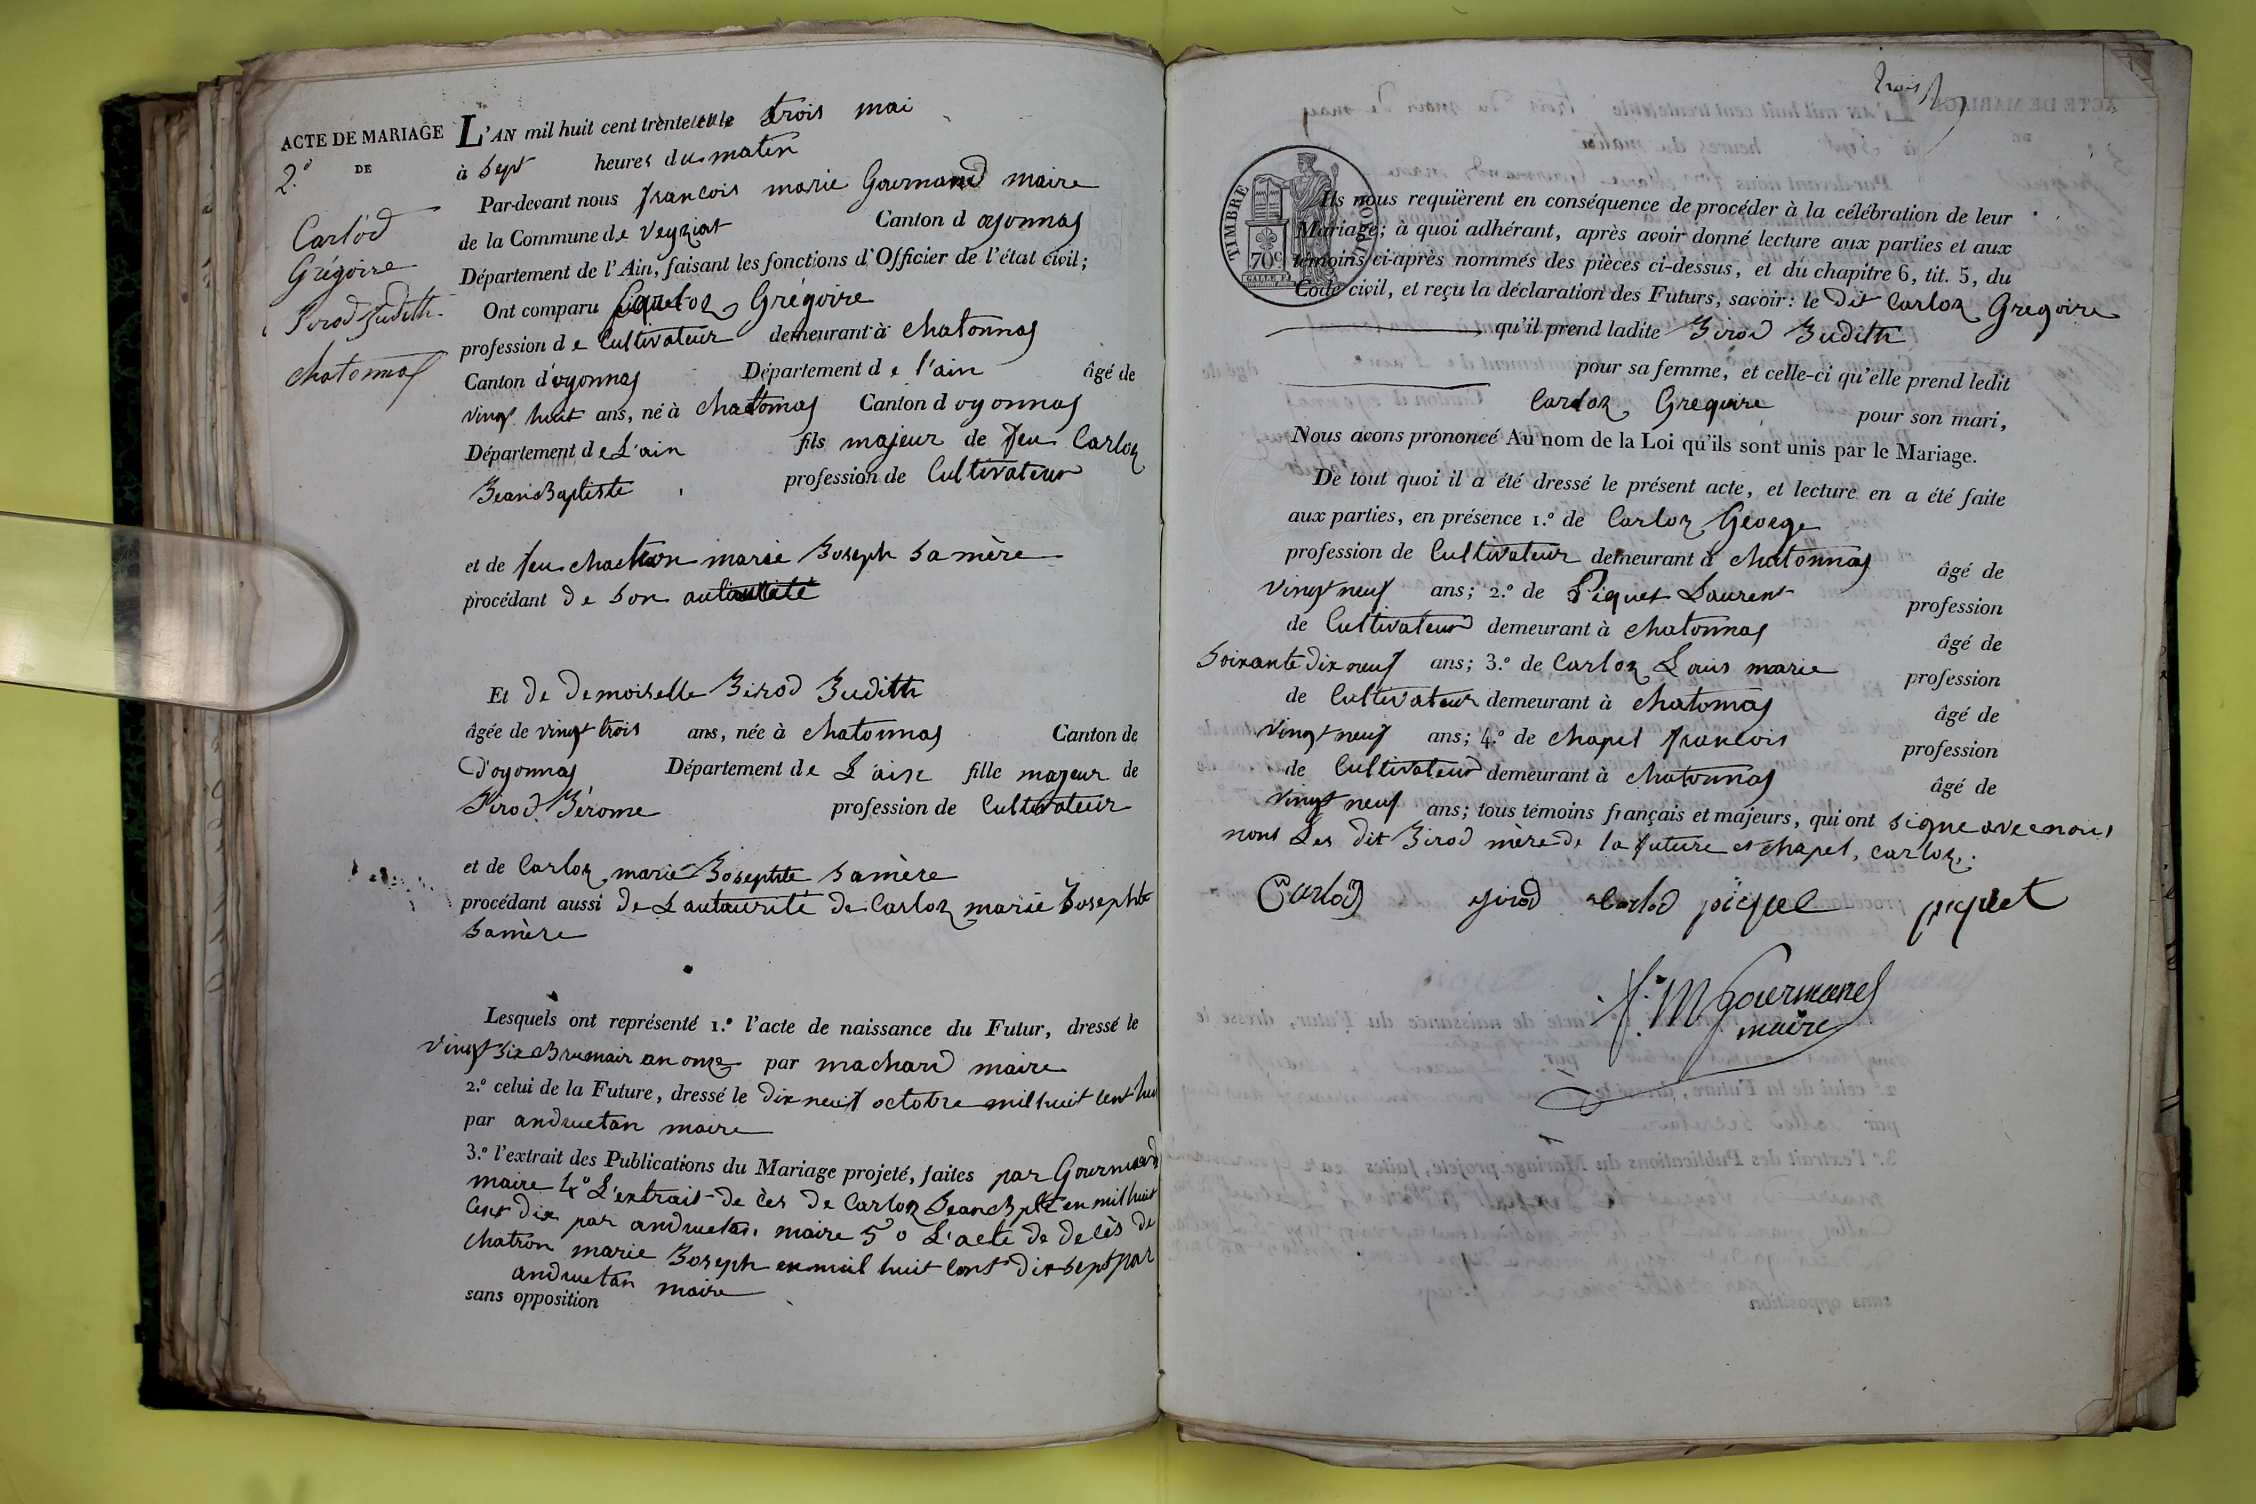 ACTE DE MARIAGE
2.º DE
Carlod
Grégoire
Girod Judith
chatonnas
L'AN mil huit cent trente trois mai
à Sept heures du matin
Par-devant nous françois marie Gourmand maire
de la Commune de Veyziat Canton d oyonnas
Département de l'Ain, faisant les fonctions d'Officier de l'état civil;
Ont comparu Carloz Grégoire
profession de Cultivateur demeurant à chatonnas
Canton d'oyonnas Département de l'ain âgé de
vingt huit ans, né à chatonnas Canton d oyonnas
Département de L'ain fils majeur de feu Carloz
Jean Baptiste profession de Cultivateur
et de feu chatron marie Joseph Samère
procédant de Son autaurité
Et de Demoiselle Girod Judith
âgée de vingt trois ans, née à chatonnas Canton de
d'oyonnas Département de L'ain fille majeur de
Girod Jérome profession de Cultivateur
et de Carloz marie Josephte Samère
procédant aussi de L autaurité de Carloz marie Josephte
Samère
Lesquels ont représenté 1.º l'acte de naissance du Futur, dressé le
vingt Six Brumair an onze par machard maire
2.º celui de la Future, dressé le dix neuf octobre mil huit cent hui
par andruetan maire
3.º l'extrait des Publications du Mariage projeté, faites par Gourmand
maire 4º L'extrait de cès de Carloz Jean Bpte en mil huit
Cent dix par andruetan maire 5º L'acte de decès de
chatron marie Joseph en mil huit Cent dix sept par
andruetan maire
sans opposition
trois
TIMBRE ROYAL
70c
Ils nous requièrent en conséquence de procéder à la célébration de leur
Mariage; à quoi adhérant, après avoir donné lecture aux parties et aux
témoins ci-après nommés des pièces ci-dessus, et du chapitre 6, tit. 5, du
Code civil, et reçu la déclaration des Futurs, savoir: le dit Carloz Gregoire
qu'il prend ladite Girod Judith
pour sa femme, et celle-ci qu'elle prend ledit
Carloz Gregoire pour son mari,
Nous avons prononcé Au nom de la Loi qu'ils sont unis par le Mariage.
De tout quoi il a été dressé le présent acte, et lecture en a été faite
aux parties, en présence 1.º de Carloz George
profession de Cultivateur demeurant à chatonnas âgé de
vingt neuf ans; 2.º de Piquet Laurent profession
de Cultivateur demeurant à chatonnas âgé de
Soixante dix neuf ans; 3.º de Carloz Louis marie profession
de Cultivateur demeurant à chatonnas âgé de
vingt neuf ans; 4.º de chapel francois profession
de Cultivateur demeurant à chatonnas âgé de
vingt neuf ans; tous témoins français et majeurs, qui ont Signe avec nous
nons Les dit Girod mère de la future et chapel, carloz.
Carlod girod Carlod piquet piquet
f. M gourmand
maire